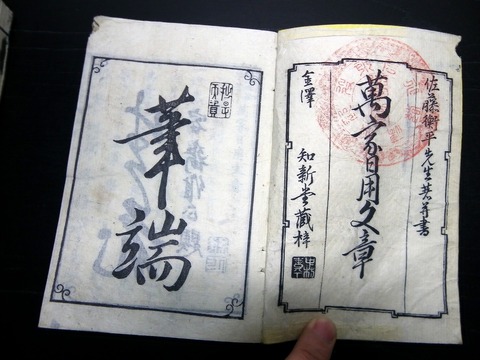 佐藤衛平先生著并書
萬家日用文章
金澤
知新堂藏梓
筆端